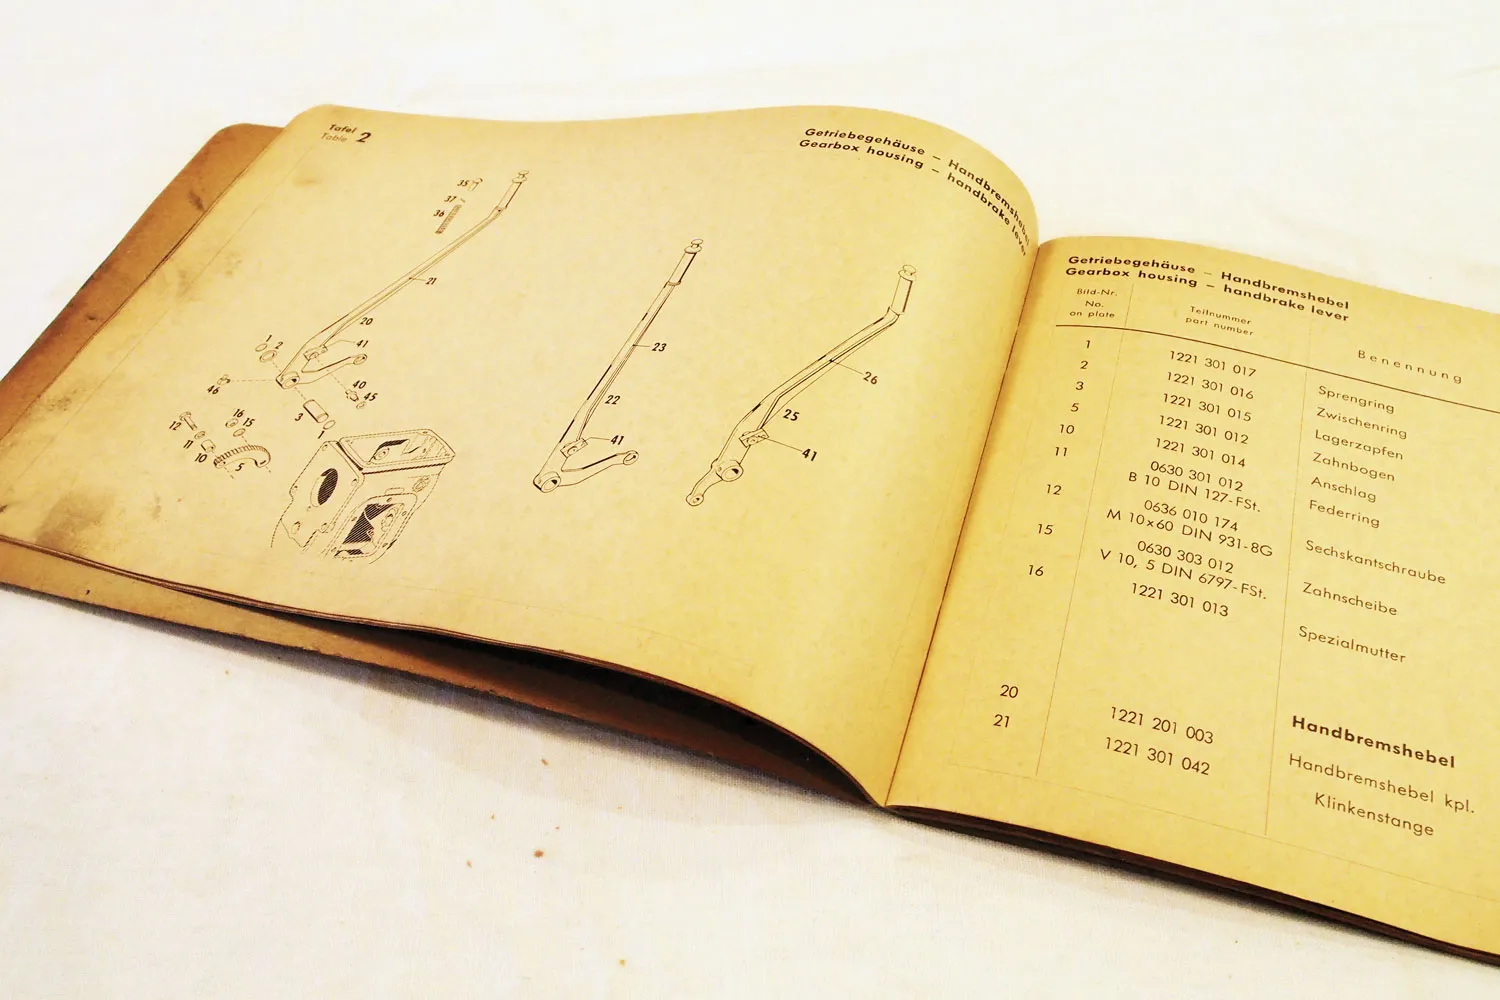 Tafel
Table 2
Getriebegehäuse – Handbremshebel
Gearbox housing – handbrake lever
35
37
36
21
20
41
1 2
46
40
45
3
1
12
16
15
11
10
5
23
22
41
26
25
41
Getriebegehäuse – Handbremshebel
Gearbox housing – handbrake lever
Bild-Nr.
No.
on plate
Teilnummer
part number
Benennung
1 1221 301 017 Sprengring
2 1221 301 016 Zwischenring
3 1221 301 015 Lagerzapfen
5 1221 301 012 Zahnbogen
10 1221 301 014 Anschlag
11 0630 301 012 Federring
B 10 DIN 127-FSt.
12 0636 010 174 Sechskantschraube
M 10x60 DIN 931-8G
15 0630 303 012 Zahnscheibe
V 10, 5 DIN 6797-FSt.
16 1221 301 013 Spezialmutter
Handbremshebel
20 1221 201 003 Handbremshebel kpl.
21 1221 301 042 Klinkenstange